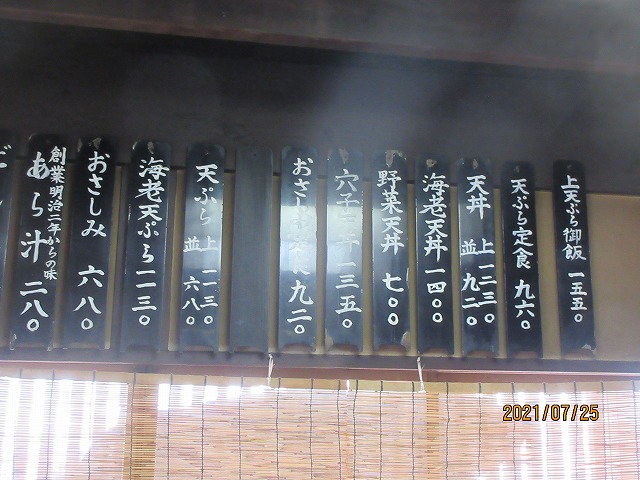 上天ぷら御飯 一五五〇
天ぷら定食 九六〇
天丼 上 一二三〇
並 九二〇
海老天丼 一四〇〇
野菜天丼 七〇〇
穴子 一三五〇
おさし 九二〇
天ぷら 上 一一三〇
並 六八〇
海老天ぷら 一一三〇
おさしみ 六八〇
創業明治二年からの味
あら汁 二八〇
2021/07/25